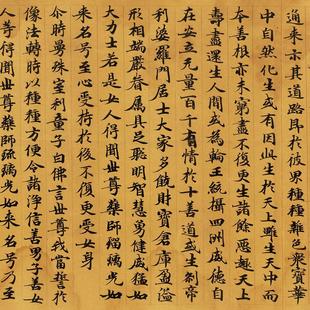 通來示其道路即於彼界種種雜色衆寶華
中自然化生或有因此生於天上雖生天中而
本善根亦未窮盡不復更生諸餘惡趣天上
壽盡還生人間或為輪王統攝四洲威德自
在安立无量百千有情於十善道或生刹帝
利婆羅門居士大家多饒財寶倉庫盈溢
形相端嚴眷属具足聡明智慧勇健威猛如
大力士若是女人得聞世尊藥師瑠璃光如
来名号至心受持於後不復更受女身
尒時曼殊室利童子白佛言世尊我當誓於
像法轉時以種種方便令諸淨信善男子善女
人等得聞世尊藥師琉璃光如来名号乃至